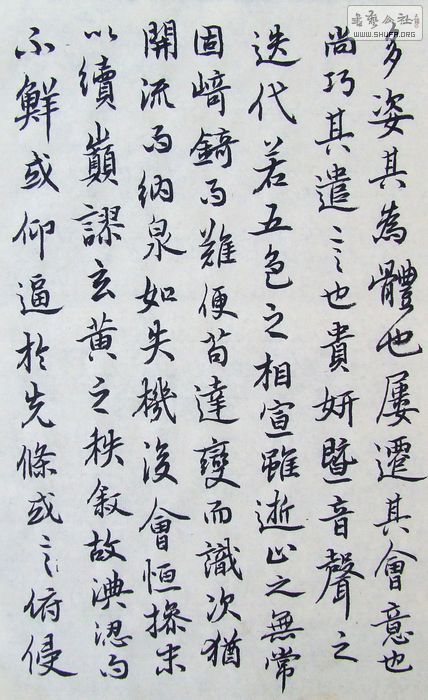 多姿其為體也屢遷其會意也
尚巧其遣言也貴妍暨音聲之
迭代若五色之相宣雖逝止之無常
固崎錡而難便苟達變而識次猶
開流而納泉如失機後會恒操末
以續巔謬玄黃之秩敘故淟涊而
不鮮或仰逼於先條或言俯侵
書藝公社
WWW.SHUFA.ORG